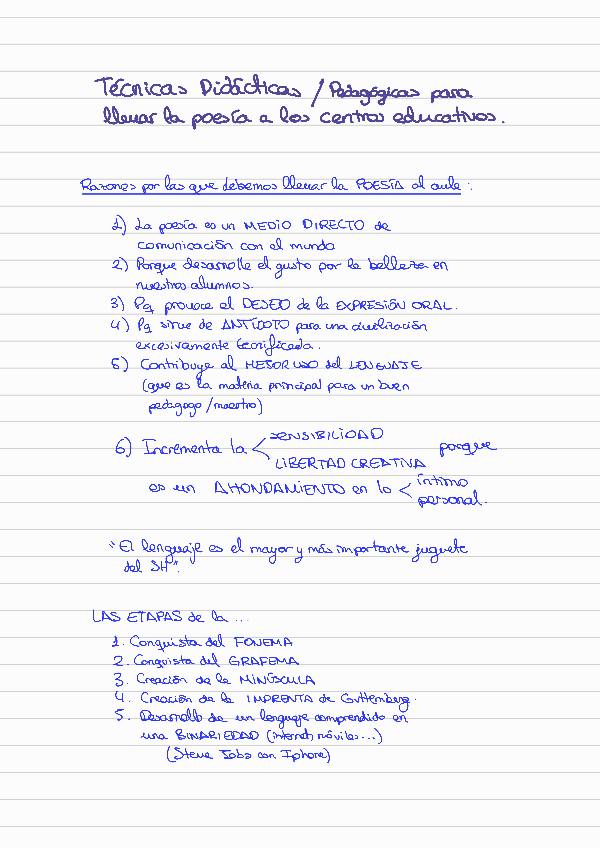 Técnicas Didácticas / Pedagógicas para
llevar la poesía a los centros educativos.
Razones por las que debemos llevar la POESÍA al aula:
1) La poesía es un MEDIO DIRECTO de
comunicación con el mundo
2) Porque desarrolla el gusto por la belleza en
nuestros alumnos.
3) Pq provoca el DESEO de la EXPRESIÓN ORAL.
4) Pq sirve de ANTÍDOTO para una civilización
excesivamente tecnificada.
5) Contribuye al MEJOR USO del LENGUAJE
(que es la materia principal para un buen
pedagogo/maestro)
6) Incrementa la < SENSIBILIDAD
LIBERTAD CREATIVA porque
es un AHONDAMIENTO en lo < íntimo
personal.
"El lenguaje es el mayor y más importante juguete
del SH".
LAS ETAPAS de la ...
1. Conquista del FONEMA
2. Conquista del GRAFEMA
3. Creación de la MINÚSCULA
4. Creación de la IMPRENTA de Guttemberg.
5. Desarrollo de un lenguaje comprendido en
una BINARIEDAD (internet, móviles...)
(Steve Jobs con Iphone)